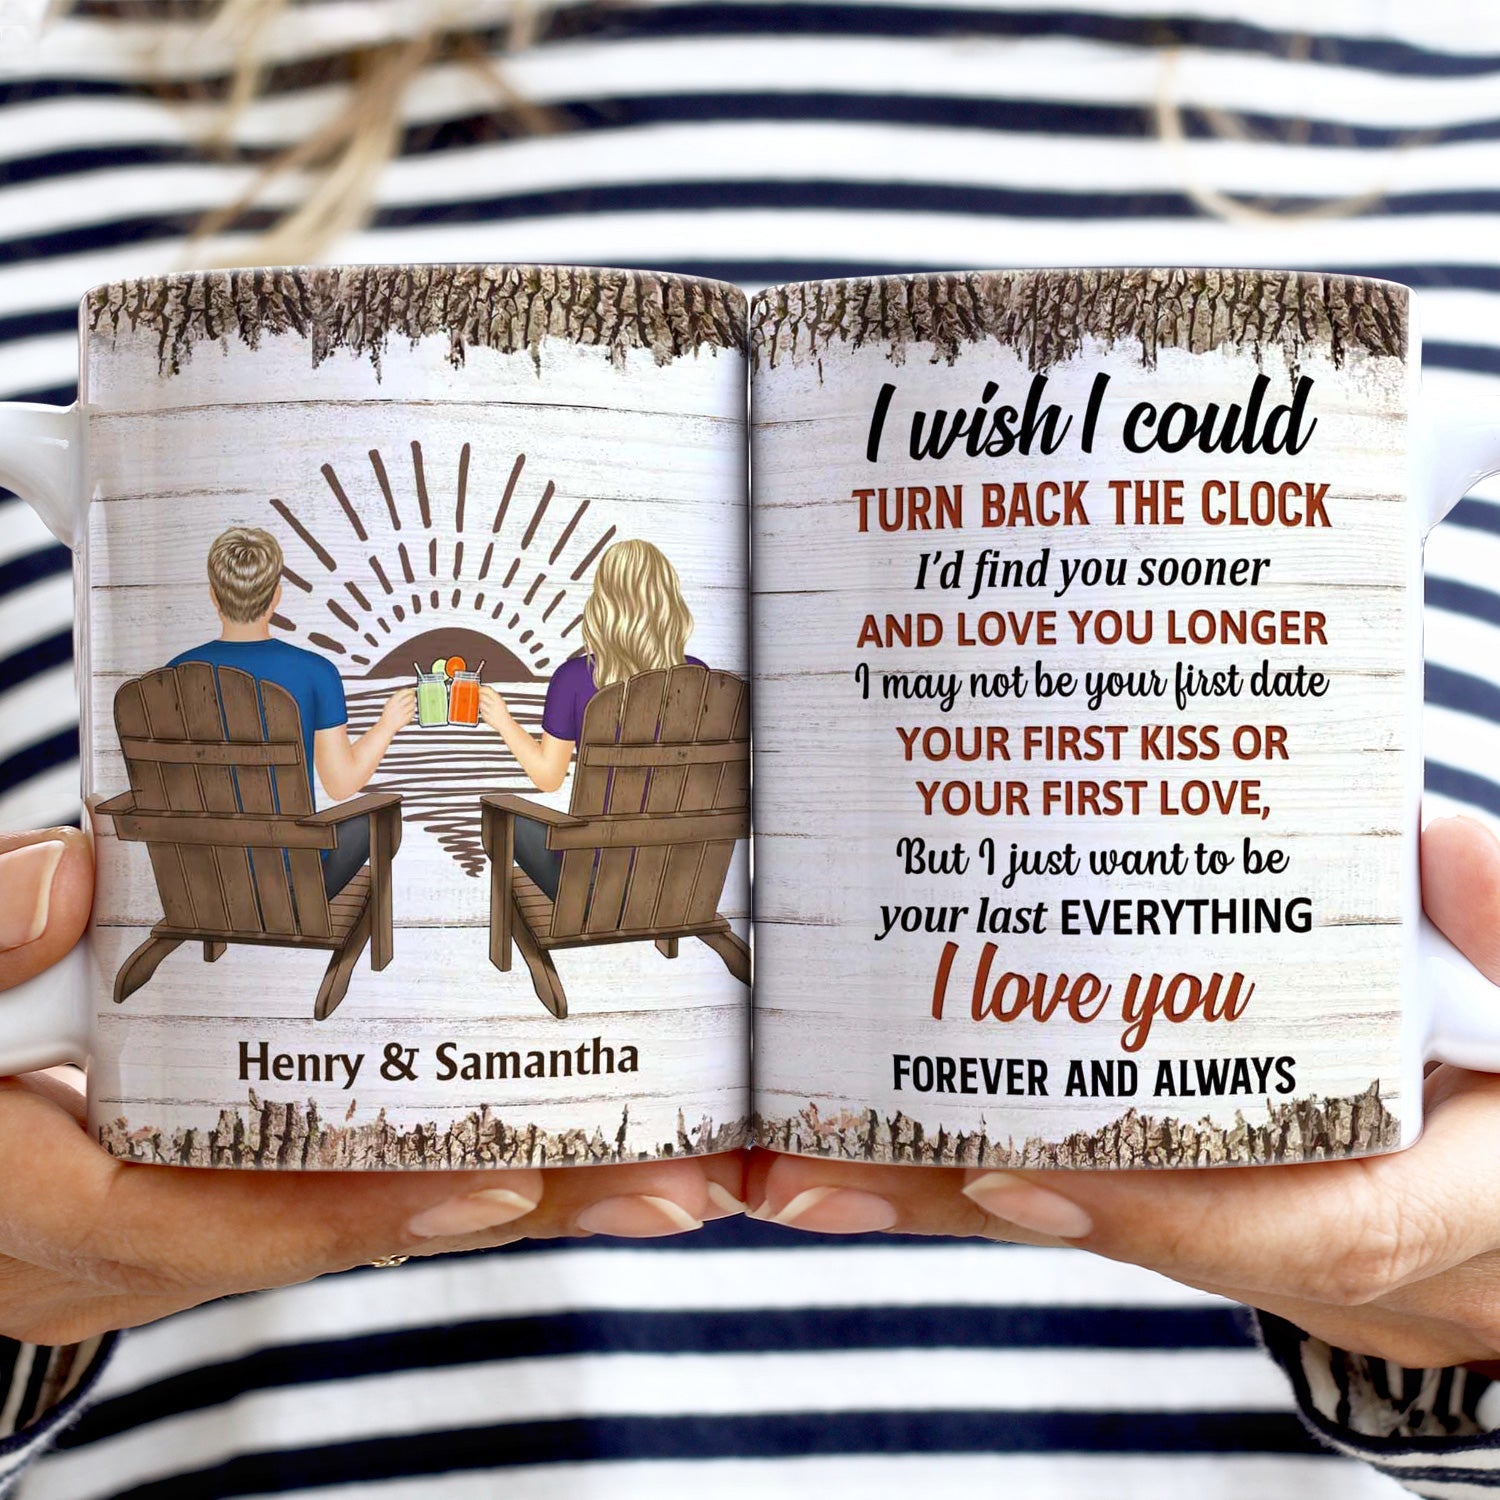 Henry & Samantha
I wish I could
TURN BACK THE CLOCK
I'd find you sooner
AND LOVE YOU LONGER
I may not be your first date
YOUR FIRST KISS OR
YOUR FIRST LOVE,
But I just want to be
your last EVERYTHING
I love you
FOREVER AND ALWAYS